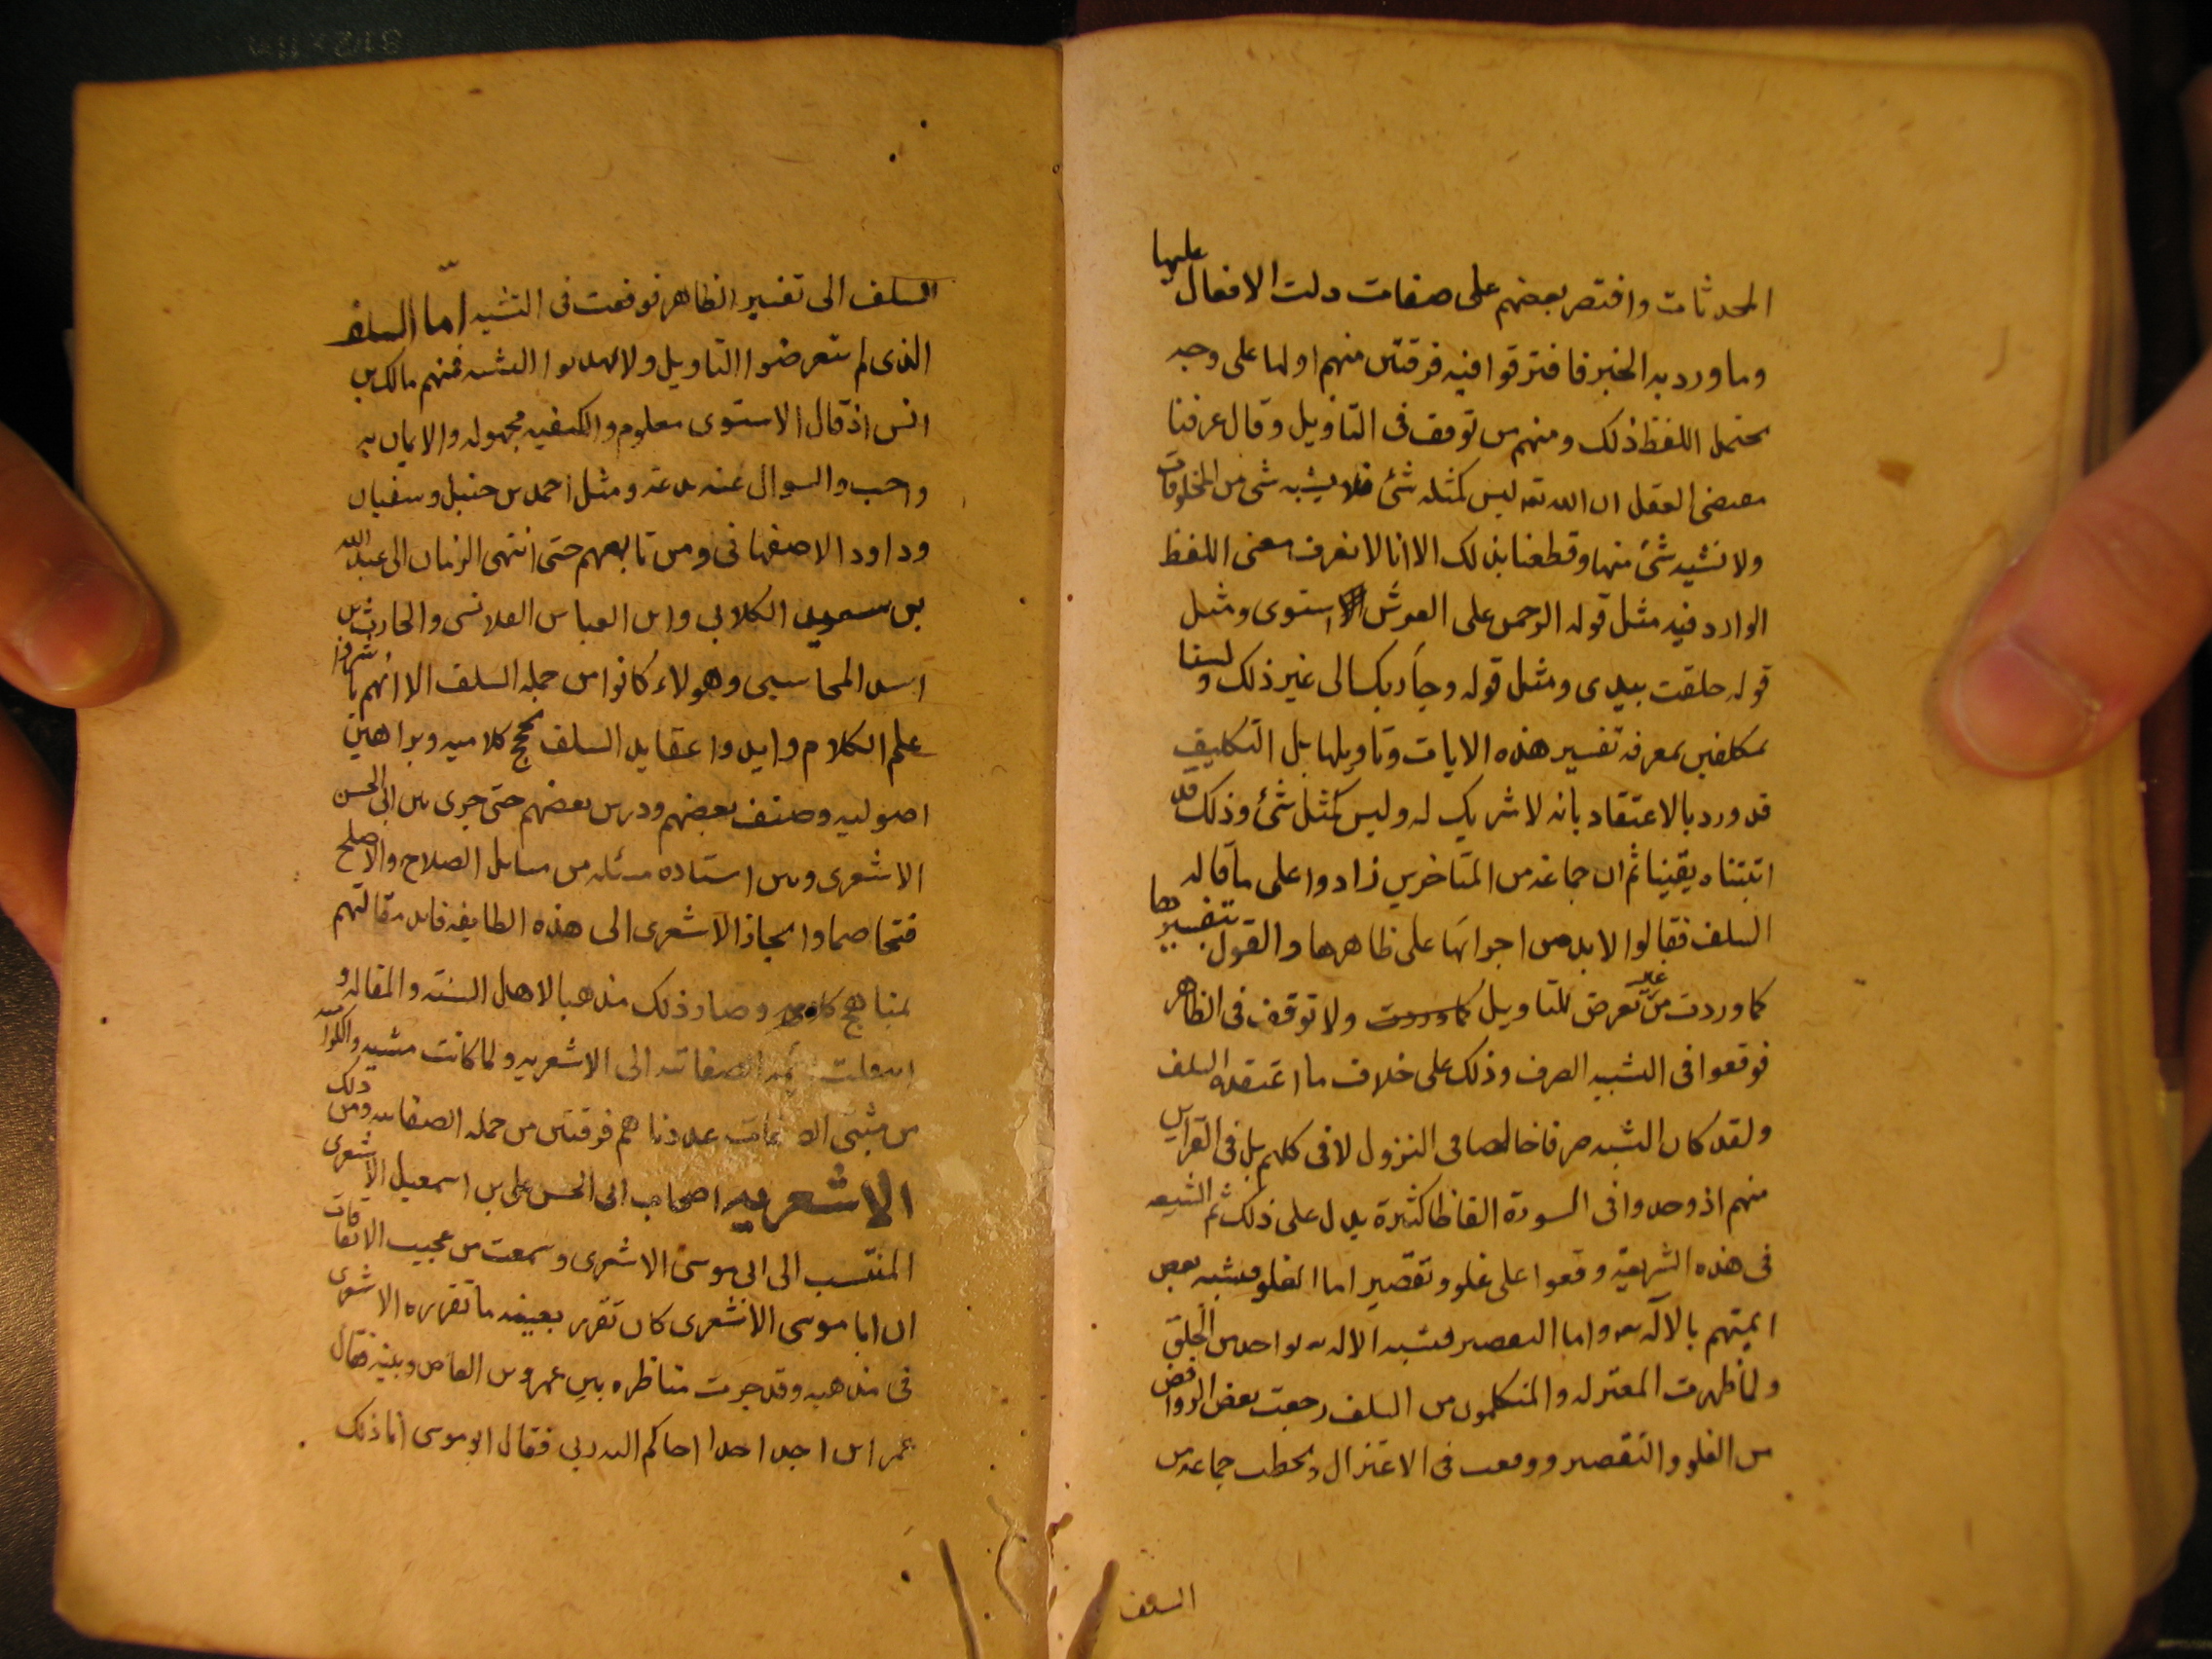 المحدثات واقتصر بعضهم على صفات دلت الافعال عليها
وما ورد به الخبر فافترقوا فيه فرقتين منهم اولها على وجه
يحتمل اللفظ ذلك ومنهم من توقف فى التاويل وقال عرفنا
بمقتضى العقل ان الله تعه ليس كمثله شئ فلا يشبه شى من المخلوقات
ولا نشبه شئ منها وقطعنا بذلك الا انا لا نعرف معنى اللفظ
الوارد فيه مثل قوله الرحمن على العرش استوى ومثل
قوله خلقت بيدى ومثل قوله وجاء ربك الى غير ذلك ولسنا
مكلفين بمعرفه تفسير هذه الايات وتاويلها بل التكليف
قد ورد بالاعتقاد بانه لا شريك له وليس كمثله شئ وذلك قد
اثبتناه يقينا ثم ان جماعة من المتاخرين زادوا على ما قاله
السلف فقالوا لابد من اجرائها على ظاهرها والقول بتفسيرها
كما وردت من غير تعرض للتاويل ولا توقف فى الظاهر
فوقعوا فى التشبيه الصرف وذلك على خلاف ما اعتقده السلف
ولقد كان التشبيه صرفا خالصا فى النزول لا فى كلهم بل فى القرايين
منهم اذ وجدوا فى السورة الفاظا كثيرة يدل على ذلك ثم الشيعه
فى هذه الشريعة وقعوا على غلو وتقصير اما الغلو فتشبيه بعض
ايمتهم بالآله واما التقصير فتشبيه الاله بواحد من الخلق
ولما ظهرت المعتزله والمتكلمون من السلف رجعت بعض الروافض
من الغلو والتقصير ووقعت فى الاعتزال وتخطت جماعه من
السلف
السلف الى تفسير الظاهر فوقعت فى التشبيه امّا السلف
الذى لم يتعرضوا التاويل ولا تهدفوا التشبيه فمنهم مالك بن
انس اذ قال الاستوى معلوم والكيفيه مجهوله والايمان به
واجب والسوال عنه بدعه ومثل احمد بن حنبل وسفيان
وداود الاصفهانى ومن تابعهم حتى انتهى الزمان الى عبد الله
بن سعيد الكلابى وابى العباس القلانسى والحارث بن
اسد المحاسبى وهولاء كانوا من جمله السلف الا انهم باشروا
علم الكلام وايدوا عقايد السلف بحجج كلاميه وبراهين
اصوليه وصنف بعضهم ودرس بعضهم حتى جرى بين ابى الحسن
الاشعرى وبين استاده مسئله من مسايل الصلاح والاصلح
فتخاصما وانحاز الاشعرى الى هذه الطايفه فايد مقالتهم
بمناهج كلاميه وصار ذلك مذهبا لاهل السنة والمقاله و
انتقلت سمه الصفاتيه الى الاشعريه ولما كانت مشبه والكراميه
من مثبتى الصفات عددناهم فرقتين من جمله الصفاتيه ومن ذلك
الاشعريه اصحاب ابى الحسن على بن اسمعيل الاشعرى
المنتسب الى ابى موسى الاشعرى وسمعت من عجيب الاتفاقات
ان ابا موسى الاشعرى كان تقرر بعينه ما تقرره الاشعرى
فى مذهبه وقد جرت مناظره بين عمرو بن العاص وبينه فقال
عمر اين اجد احدا احاكم اليه ربى فقال ابو موسى انا ذلك